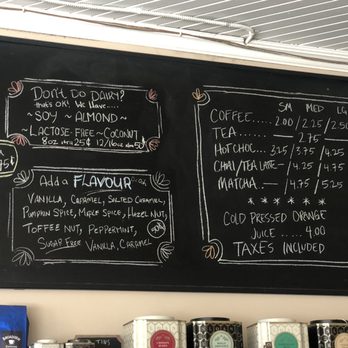 DON'T DO DAIRY?
that's OK! We have.....
~SOY ~ ALMOND~
~LACTOSE-FREE ~COCONUT
8oz 25¢ 12/16oz 50¢
75¢
Add a FLAVOUR
VANILLA, CARAMEL, SALTED CARAMEL,
PUMPKIN SPICE, MAPLE SPICE, HAZEL NUT,
TOFFEE NUT, PEPPERMINT,
SUGAR FREE VANILLA, CARAMEL
SM MED LG
COFFEE..... 2.00 / 2.25 / 2.50
TEA ..... — 2.75 —
HOT CHOC... 3.25 / 3.75 / 4.25
CHAI/TEA LATTE — / 4.25 / 4.75
MATCHA.... — / 4.75 / 5.25
* * * * * *
COLD PRESSED ORANGE
JUICE ..... 4.00
TAXES INCLUDED